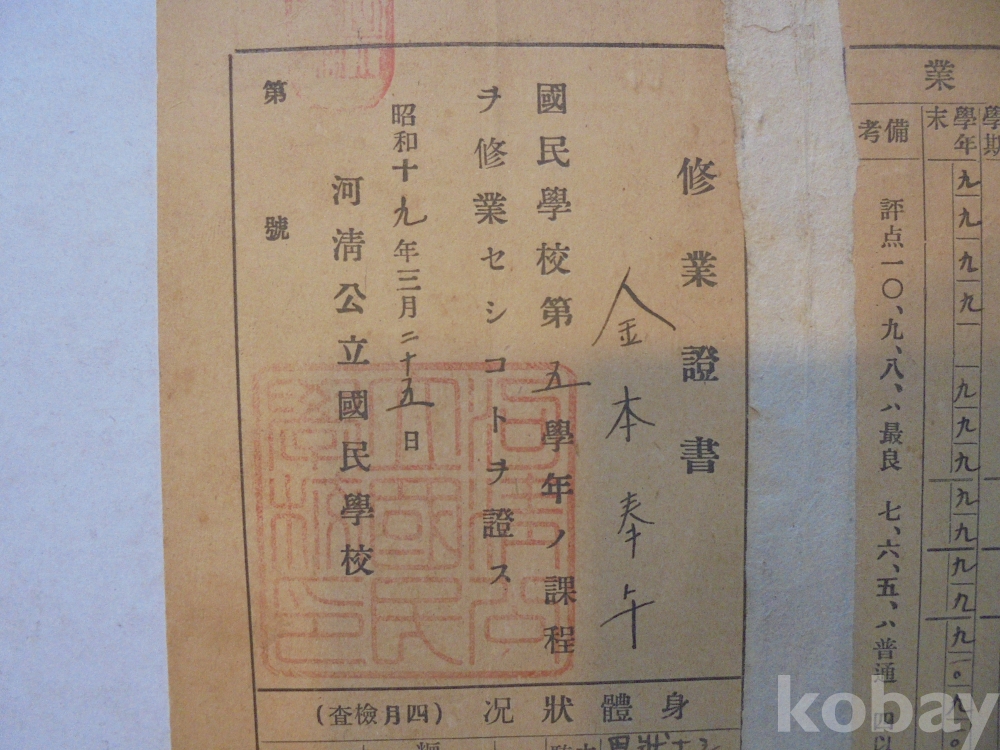 業
學期
學年末
九
九
九
九
九
九
九
九
九
九
九
一〇
九
一〇
備考
評点一〇、九、八、ハ最良 七、六、五、ハ普通 四以
修業證書
金本奉午
國民學校第五學年ノ課程
ヲ修業セシコトヲ證ス
昭和十九年三月二十五日
河淸公立國民學校
第 號
河淸公立國民學校印
身體狀況(四月檢査)
kobay